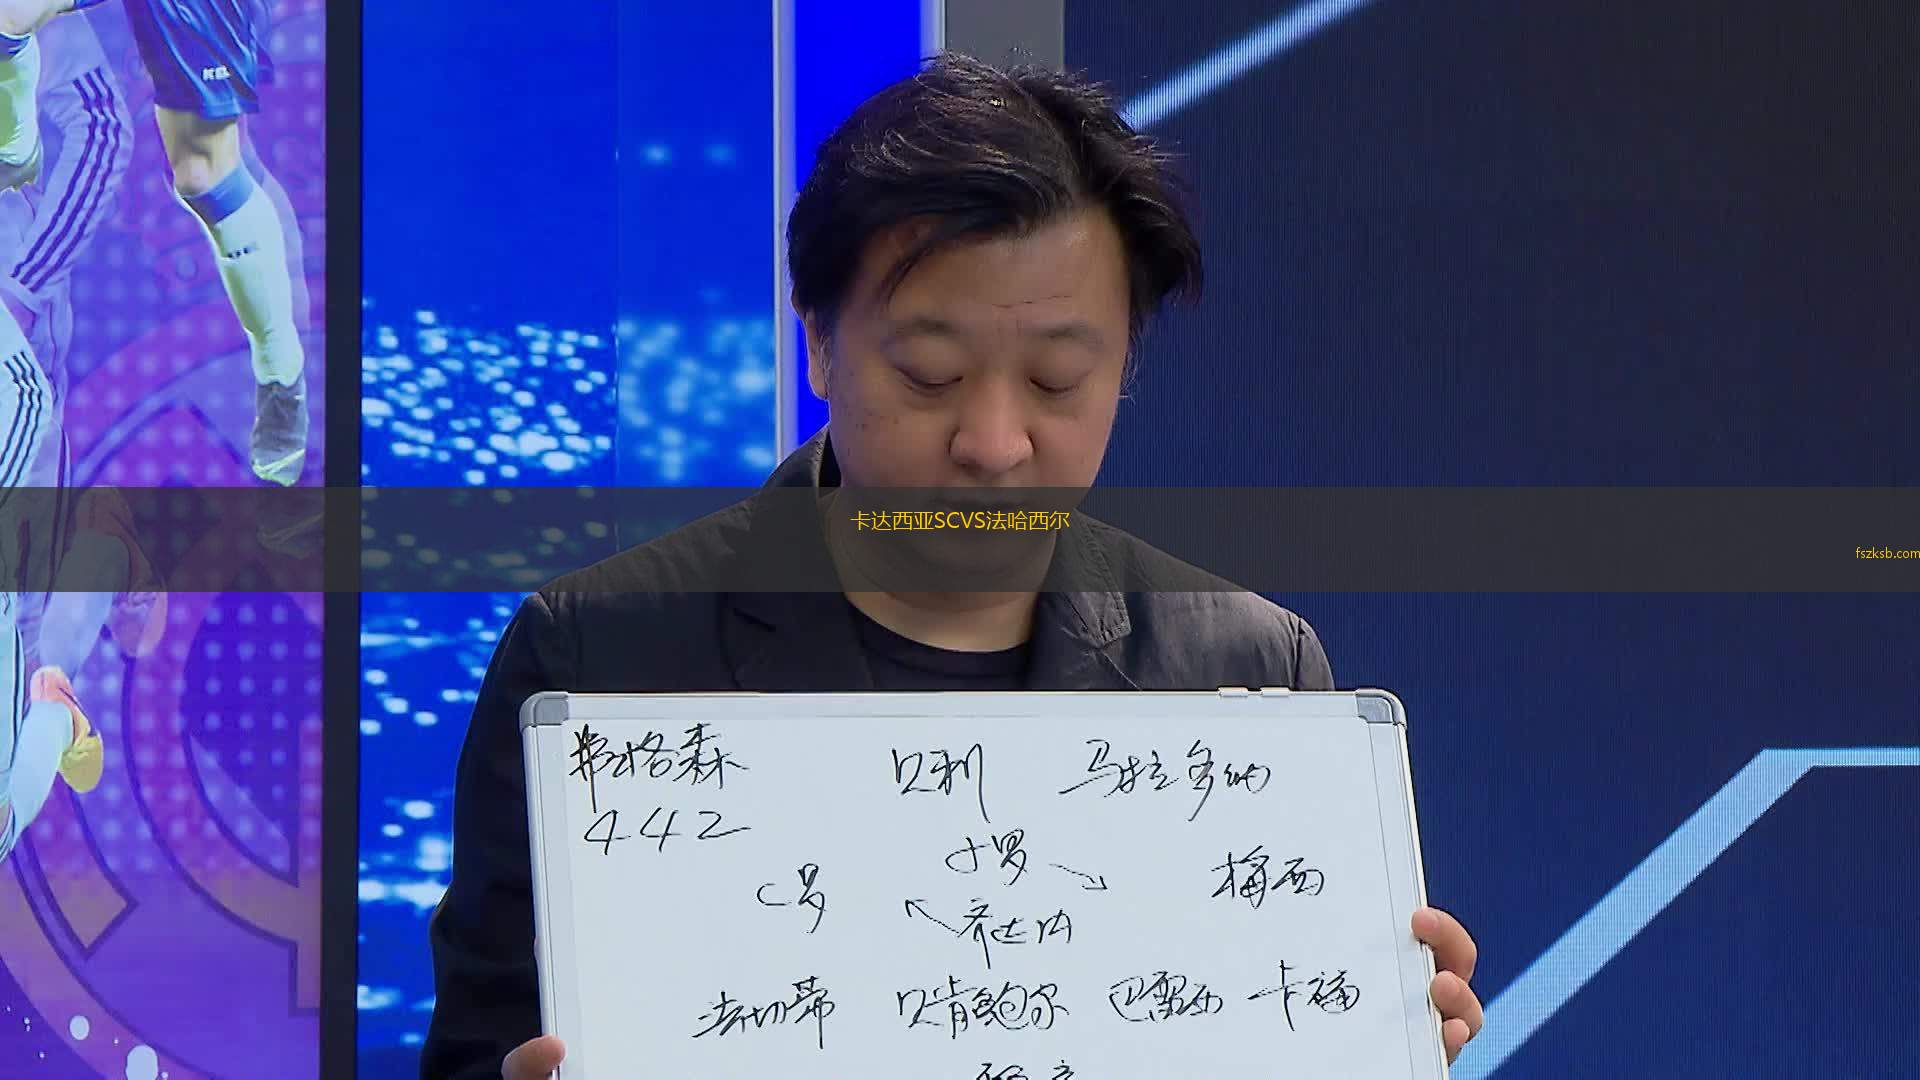 KEL
卡达西亚SCVS法哈西尔
fszksb.com
弗格森 贝利 马拉多纳
442
小罗
C罗 梅西
齐达内
法切蒂 贝肯鲍尔 巴雷西 卡福